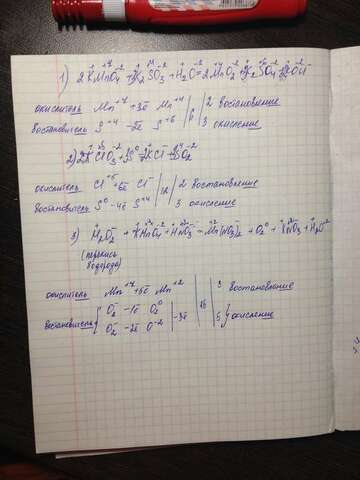 1) 2KMnO₄ + 3K₂SO₃ + H₂O = 2MnO₂ + 3K₂SO₄ + 2KOH
окислитель Mn⁺⁷ +3ē Mn⁺⁴ | 6 | 2 востановление
востановитель S⁺⁴ -2ē S⁺⁶ | 3 окисление
2) 2KClO₃ + 3S⁰ 2KCl 3SO₂
окислитель Cl⁺⁵ +6ē Cl⁻ | 12 | 2 востановление
Востановитель S⁰ -4ē S⁺⁴ | 3 окисление
3) H₂O₂ + KMnO₄ + HNO₃ = Mn(NO₃)₂ + O₂⁰ + KNO₃ + H₂O
(перекись
водорода)
окислитель Mn⁺⁷ +5ē Mn⁺² | 3 востановление
востановитель { O₂⁻ -1ē O₂⁰ | -3ē | 15
O₂⁻ -2ē O⁻² | 5 } окисление